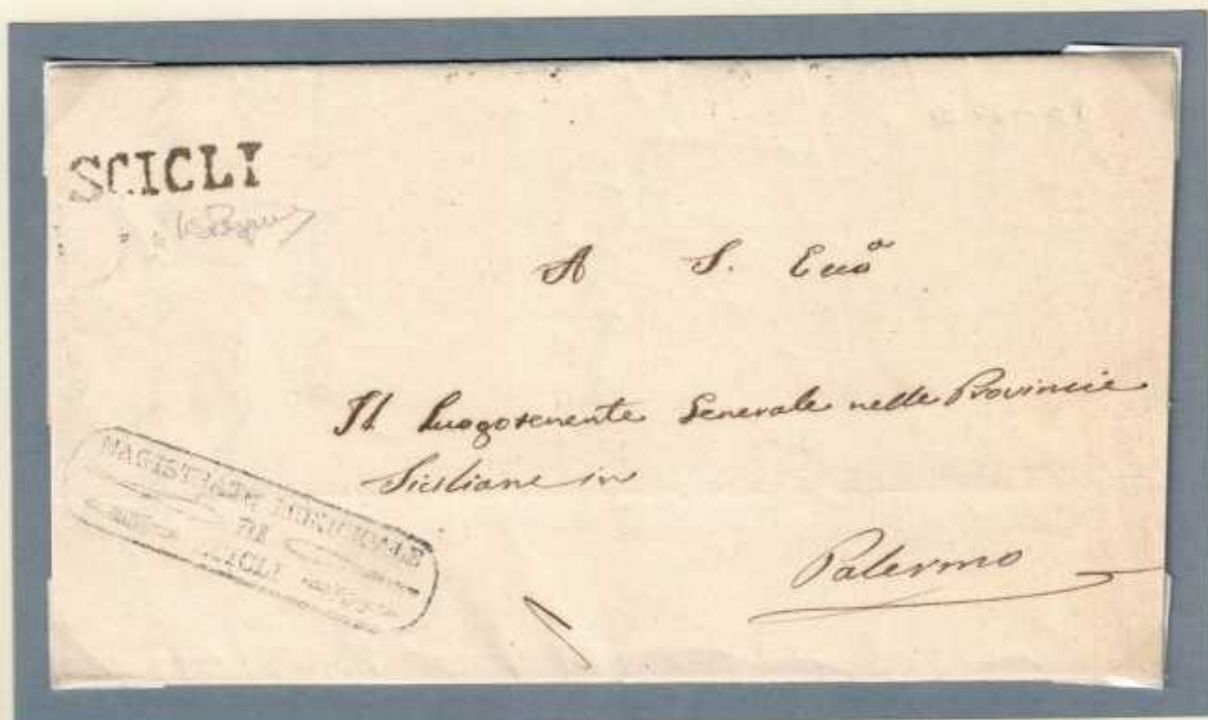 SCICLI
A S. Ecc.ª
Il Luogotenente Generale nelle Provincie
Siciliane in
Palermo
MAGISTRATO MUNICIPALE
DI
SCICLI